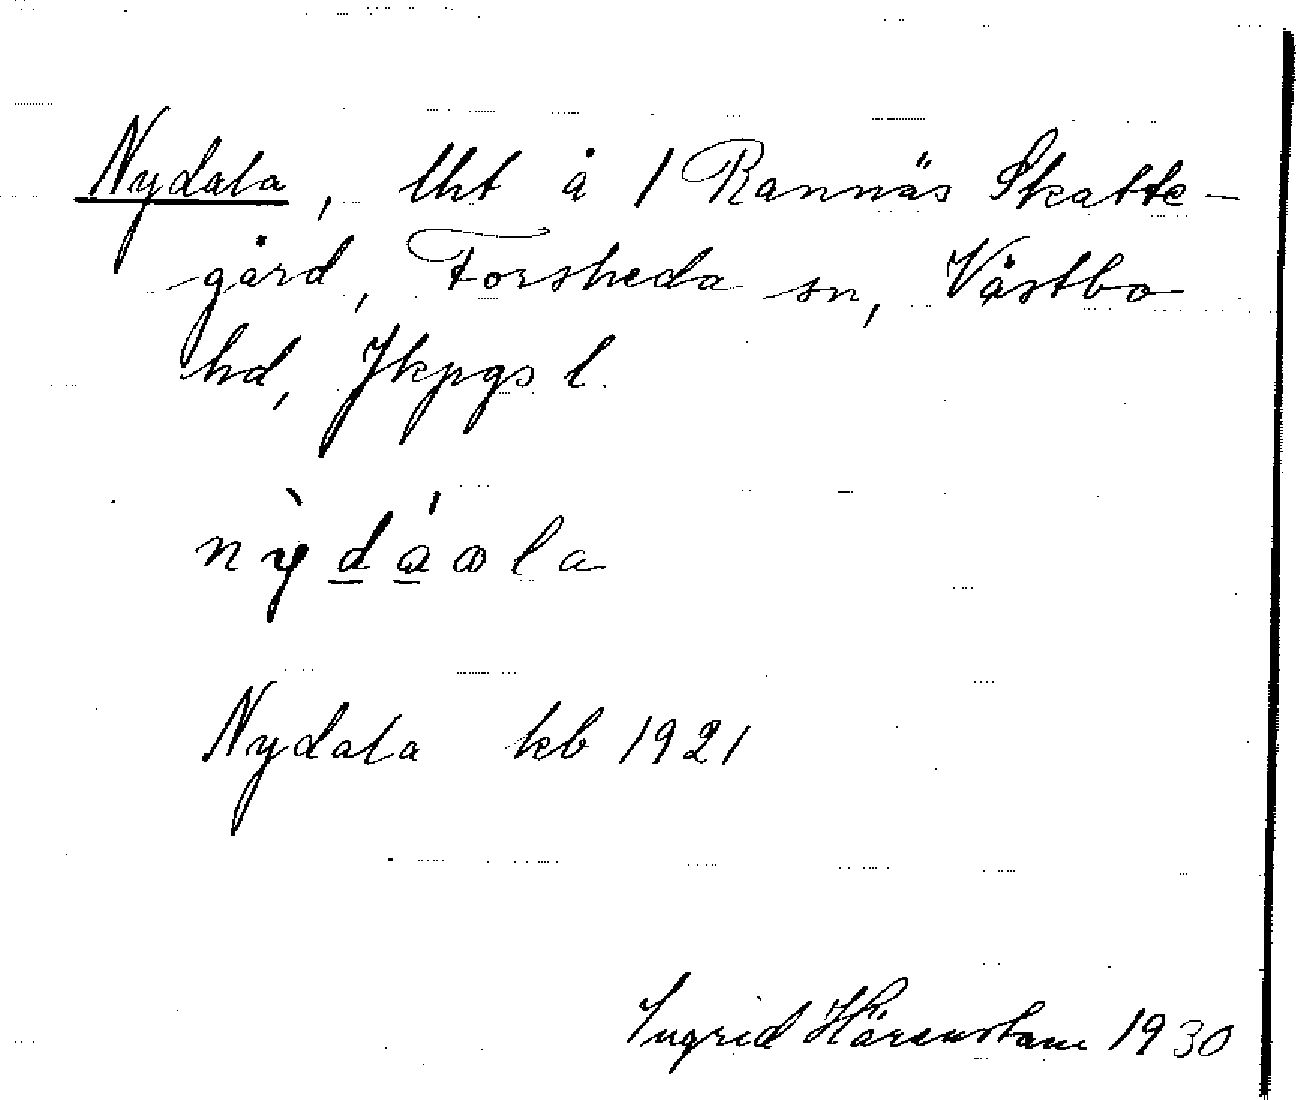 Nydala, lht å 1 Rannäs Skatte-
gård, Forsheda sn, Västbo
hd, Jkpgs l.
nỳdáala
Nydala kb 1921
Ingrid Härenstam 1930